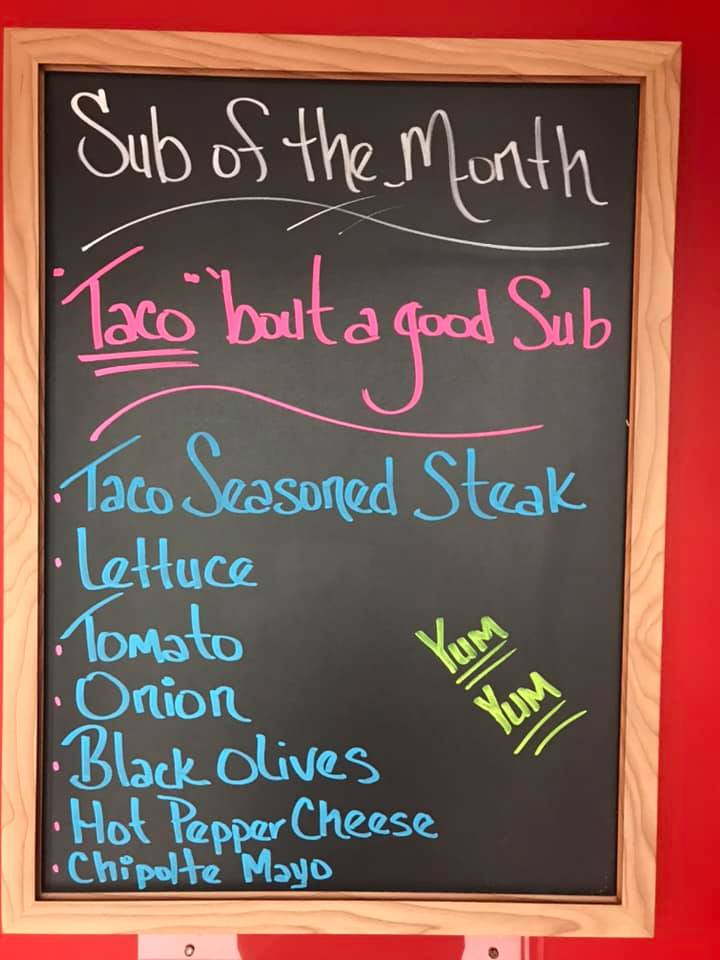 Sub of the Month
"Taco" 'bout a good Sub
· Taco Seasoned Steak
· Lettuce
· Tomato
· Onion
· Black Olives
· Hot Pepper Cheese
· Chipolte Mayo
Yum
Yum